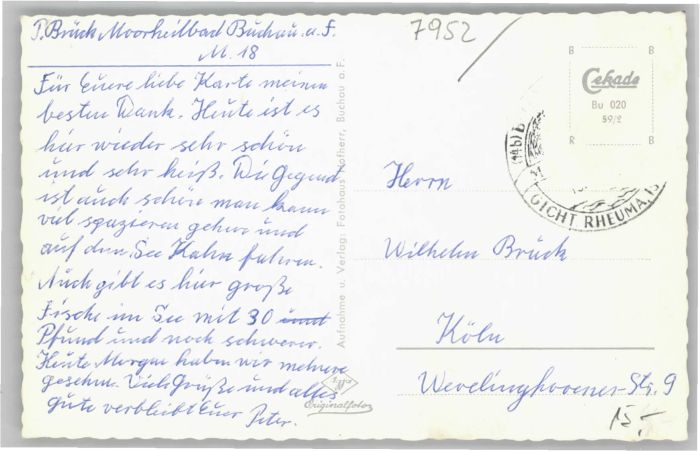 P. Brück Moorheilbad Buchau. a. F.
M. 18
Für Euere liebe Karte meinen
besten Dank. Heute ist es
hier wieder sehr schön
und sehr heiß. Die Gegend
ist auch schöne man kann
viel spazieren gehen und
auf dem See Kahn fahren.
Auch gibt es hier große
Fische im See mit 30 und
Pfund und noch schwerer.
Heute Morgen haben wir mehrere
gesehen. Viele Grüße und alles
gute verbleibt Euer Peter.
Aufnahme u. Verlag: Fotohaus Buchau a. F.
Agfa
Originalfoto
7952
B B
Cekade
Bu 020
59/2
R B
(14b) B
GICHT RHEUMA, IS
Herrn
Wilhelm Brück
Köln
Wevelinghovener-Str. 9
15,-